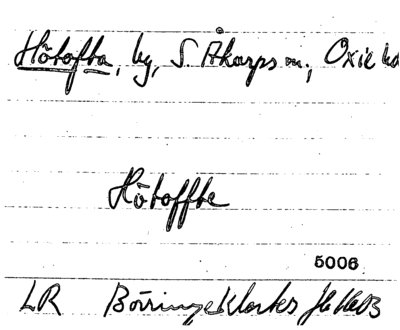 Hötofta, by, S. Åkarps sn., Oxie hd
Hötoffte
5006
LR Börringe Klosters